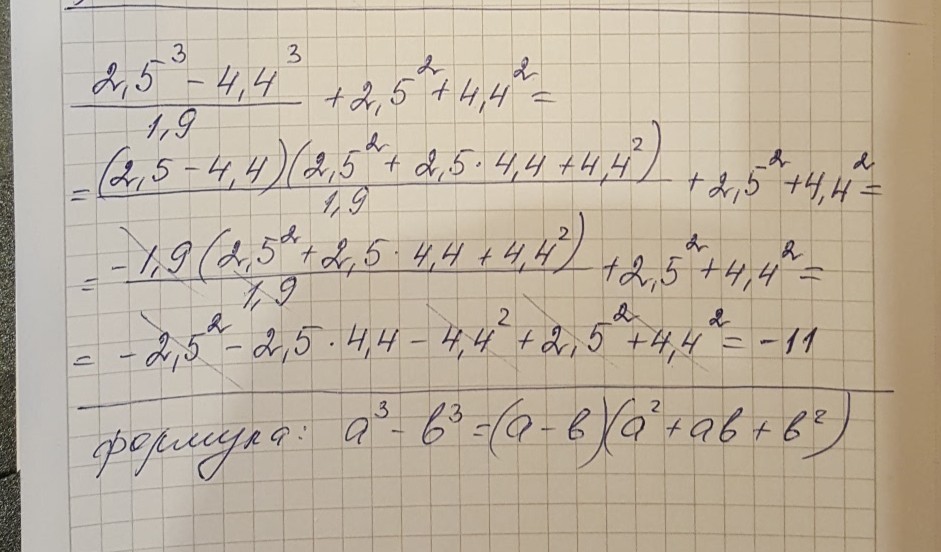 (2,5³ - 4,4³)/1,9 + 2,5² + 4,4² =
= (2,5 - 4,4)(2,5² + 2,5 · 4,4 + 4,4²)/1,9 + 2,5² + 4,4² =
= -1,9(2,5² + 2,5 · 4,4 + 4,4²)/1,9 + 2,5² + 4,4² =
= -2,5² - 2,5 · 4,4 - 4,4² + 2,5² + 4,4² = -11
формула: a³ - b³ = (a - b)(a² + ab + b²)